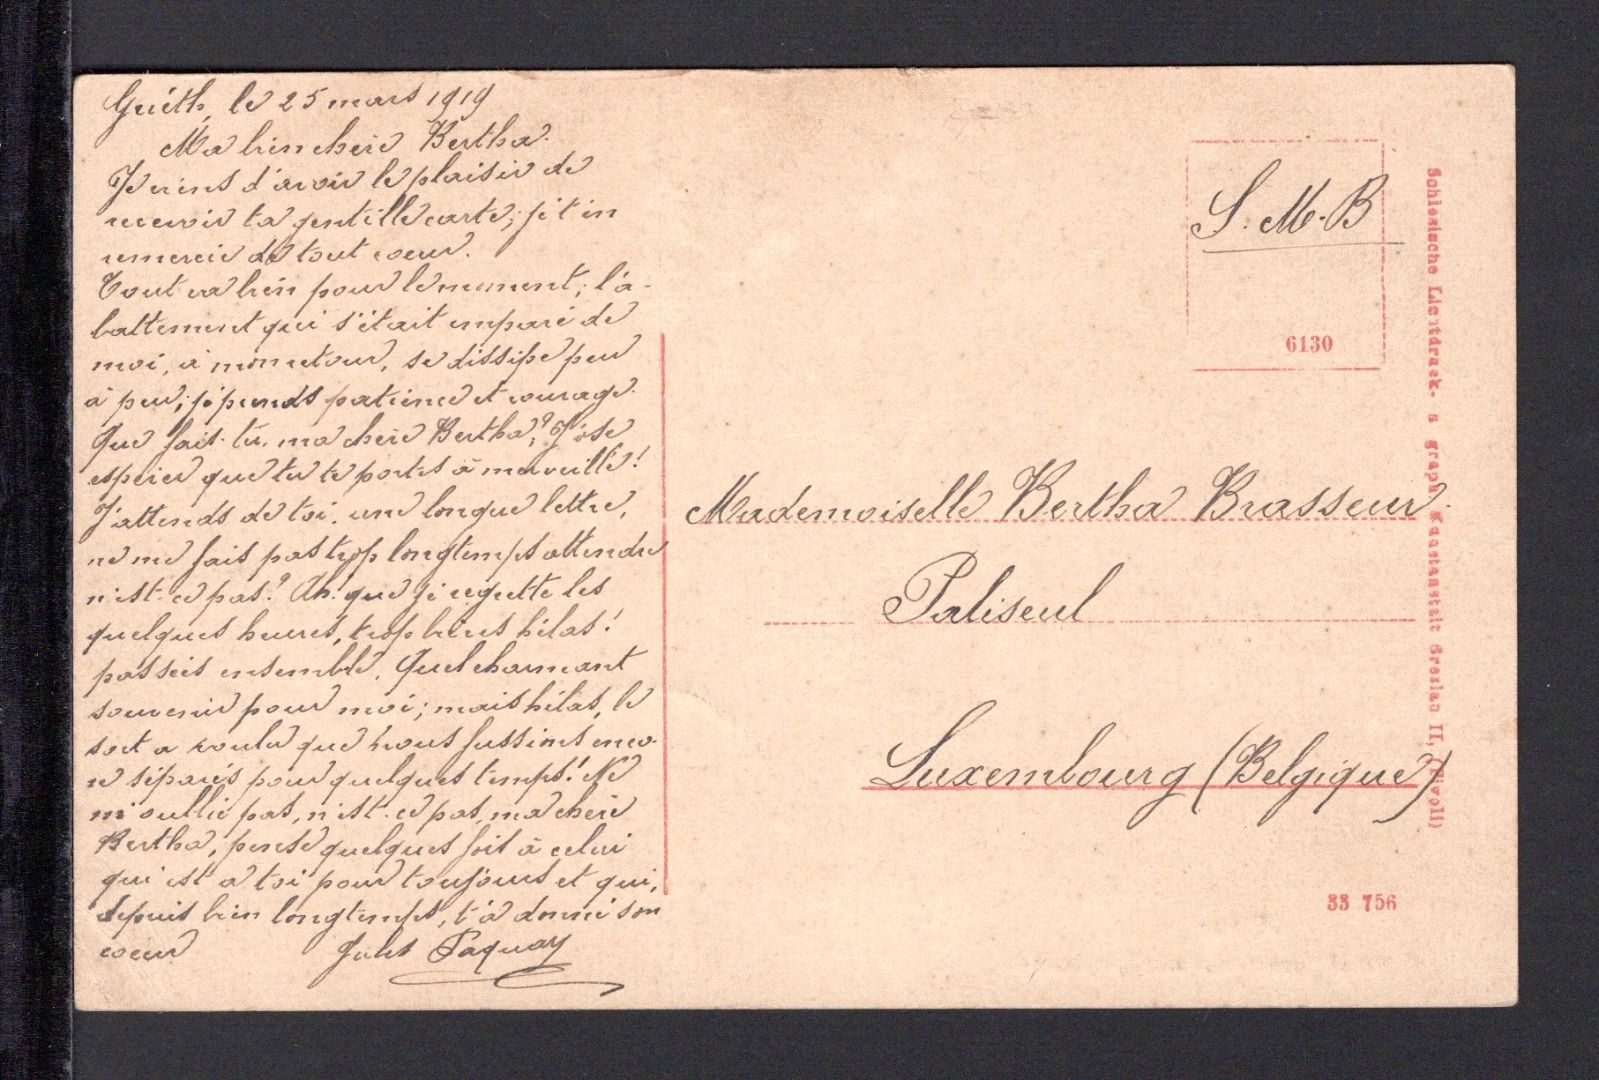 le 25 mars 1919
Ma bien chère Bertha.
Je viens d'avoir le plaisir de
recevoir ta gentille carte; je t'en
remercie de tout coeur.
Tout va bien pour le moment; l'a-
battement qui s'était emparé de
moi, à mon retour, se dissipe peu
à peu; je prends patience et courage.
Que fais-tu, ma chère Bertha,? J'ose
espérer que tu te portes à merveille!
J'attends de toi, une longue lettre,
ne me fais pas trop longtemps attendre
n'est-ce pas? Ah! que je regrette les
quelques heures, trop brèves hélas!
passées ensemble. Quel charmant
souvenir pour moi; mais hélas, le
sort a voulu que nous fussions enco-
re séparés pour quelques temps! Ne
m'oublie pas, n'est-ce pas, ma chère
Bertha, pense quelques fois à celui
qui est à toi pour toujours et qui,
depuis bien longtemps, t'a donné son
coeur Jules Paquay
S. M. B
6130
Mademoiselle Bertha Brasseur.
Paliseul
Luxembourg (Belgique)
33 756
Schlesische Lichtdruck- u graph Kunstanstalt Breslau II, (Tivoli)